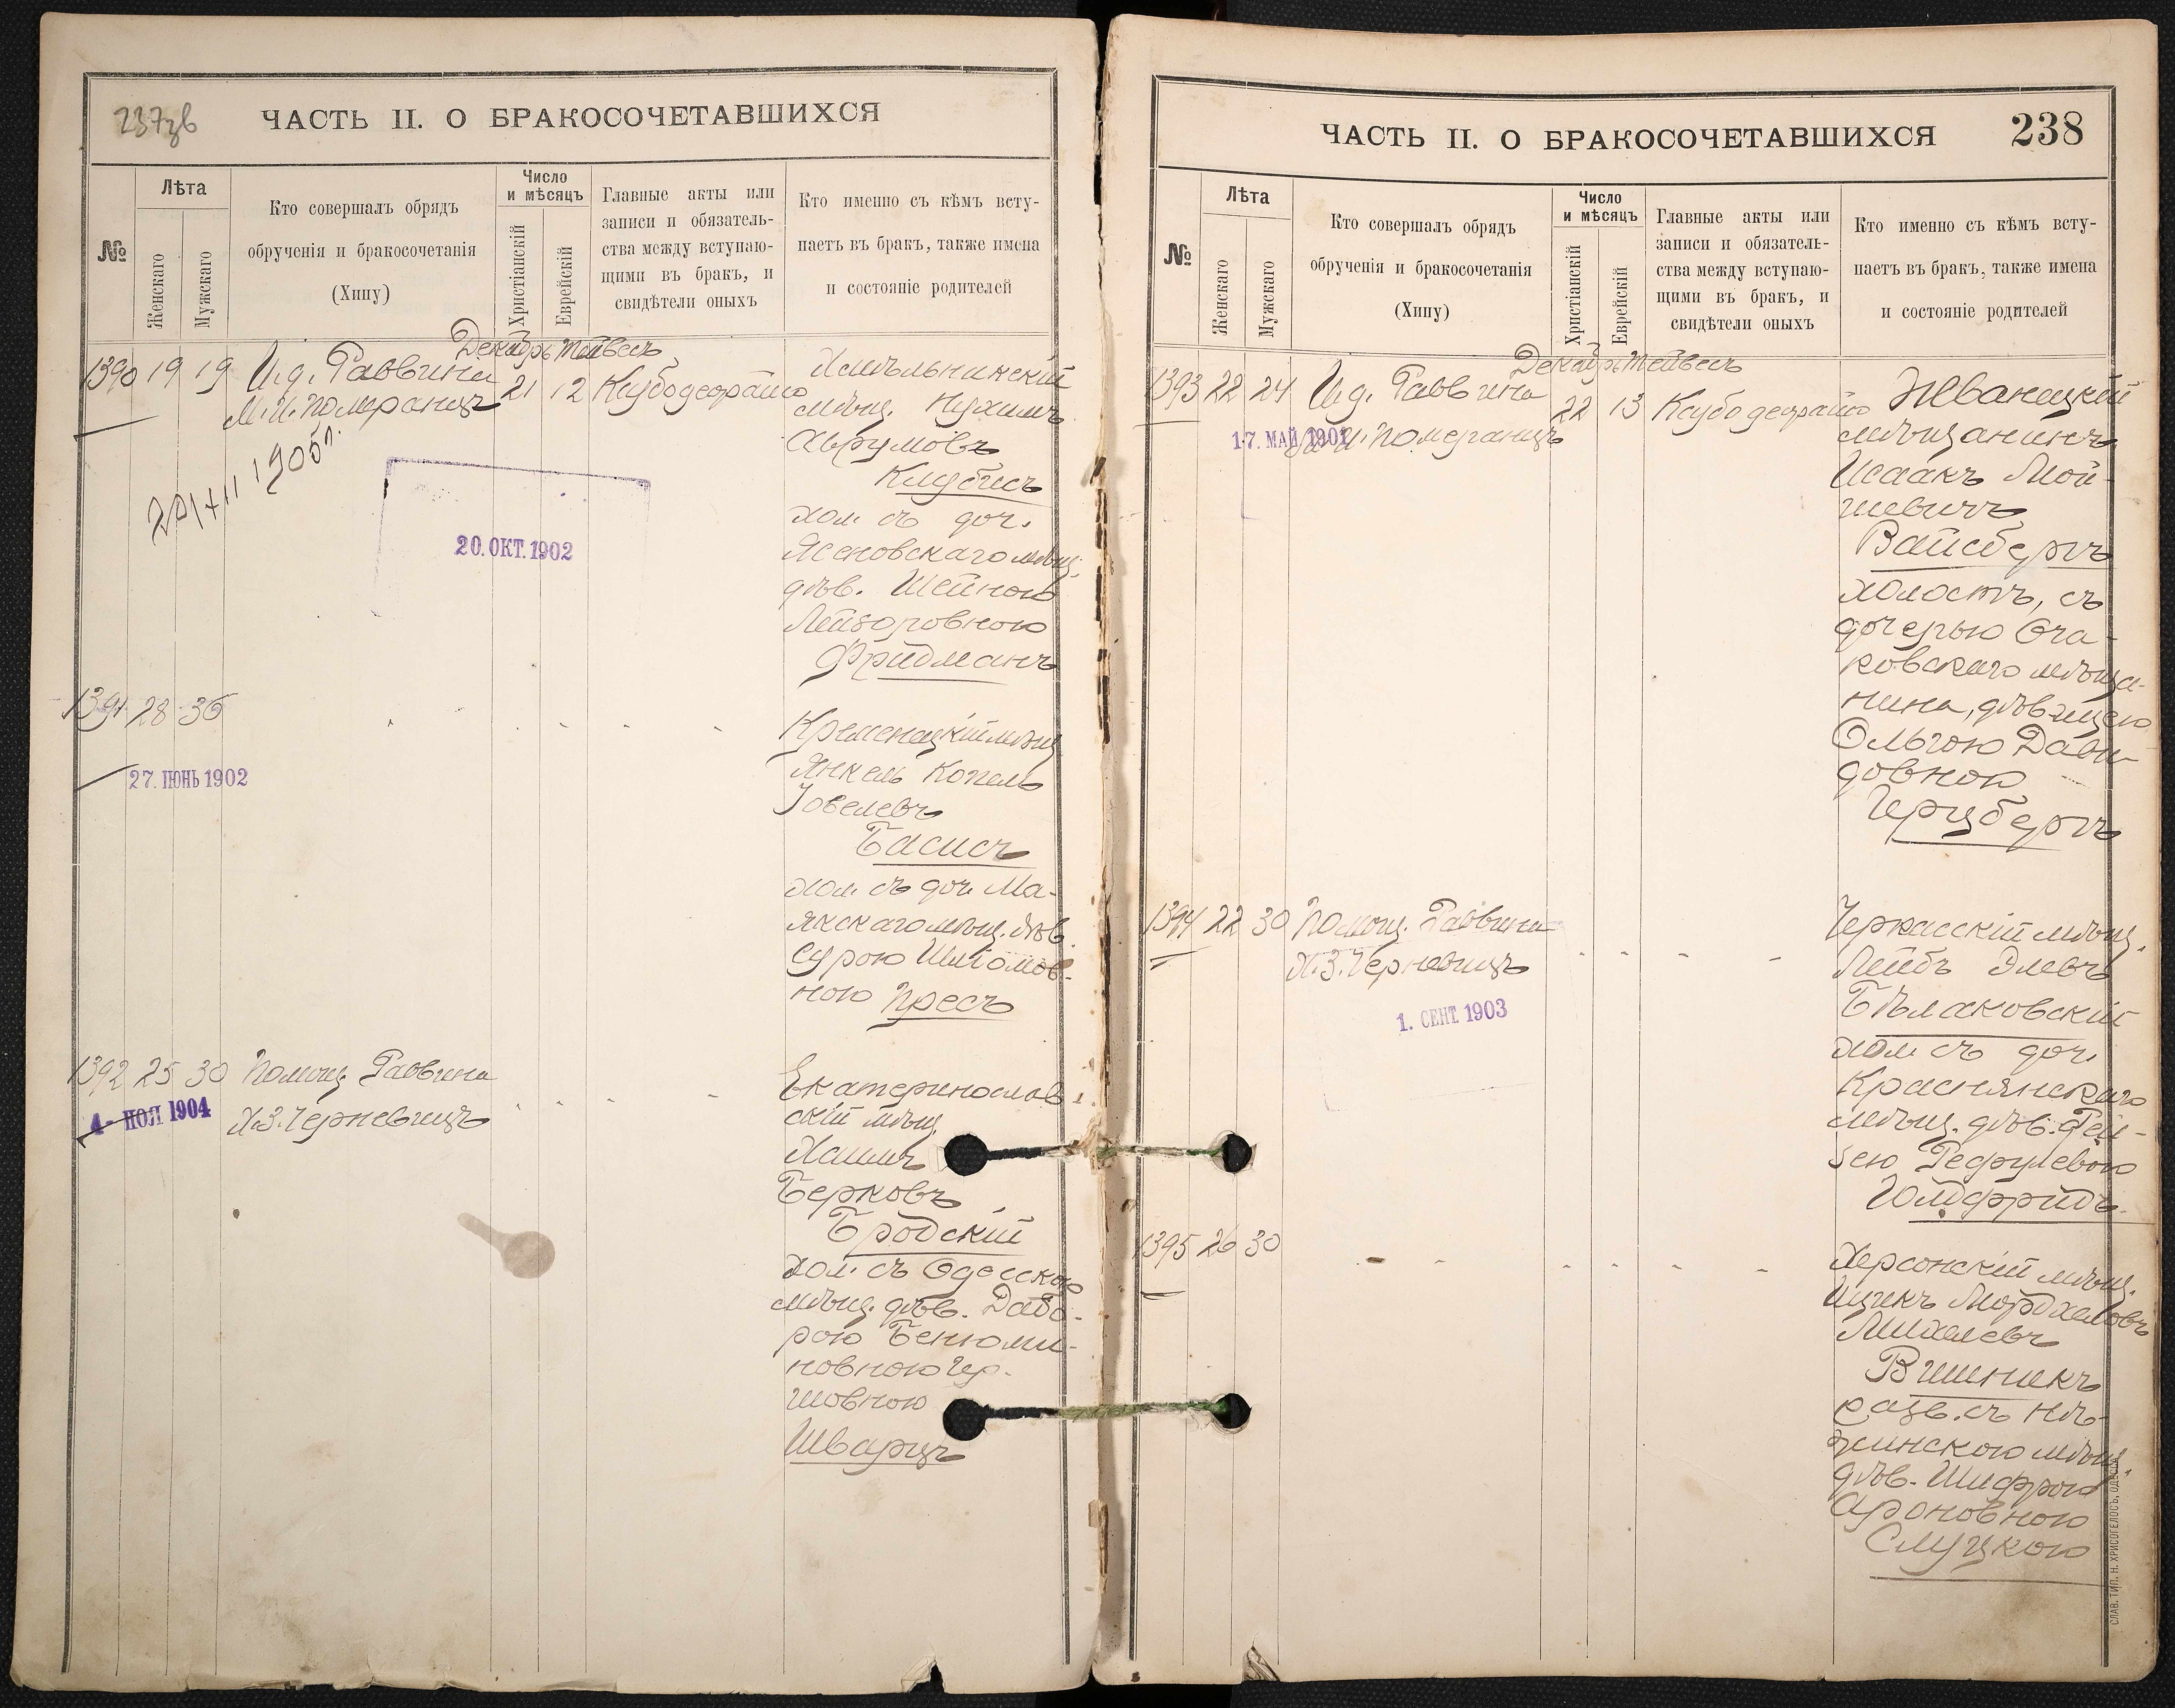 237зв
ЧАСТЬ II. О БРАКОСОЧЕТАВШИХСЯ
№
Лѣта
Женскаго
Мужскаго
Кто совершалъ обрядъ
обрученія и бракосочетанія
(Хипу)
Число
и мѣсяцъ
Христіанскій
Еврейскій
Главные акты или
записи и обязатель-
ства между вступаю-
щими въ бракъ, и
свидѣтели оныхъ
Кто именно съ кѣмъ всту-
паетъ въ бракъ, также имена
и состояніе родителей
Декабрь Тейвесъ
1390 19 19 И.д. Раввина 21 12
М.И. Померанцъ
Хмѣльникскій
мѣщ. Нухимъ
Аврумовъ
хол. съ доч.
Ясеновскаго мѣщ.
дѣв. Шейною
Лейзоровною
Фридманъ
20. ОКТ. 1902
1391 28 36
27. ІЮНЬ 1902
Кременацкій мѣщ.
Янкель Копель
Іовелевъ
Басисъ
хол. съ доч. Ма-
якскаго мѣщ. дѣв.
Сурою Шліомов-
ною Пресъ
1392 25 30 Помощ. Раввина
Х.З. Черневицъ
4- НОЯ 1904
Екатеринослав-
скій мѣщ.
Хаимъ
Берковъ
Бродскій
хол. съ Одесскою
мѣщ. дѣв. Дабо-
рою Бенюми-
новною Гер-
шовною
Шварцъ
ЧАСТЬ II. О БРАКОСОЧЕТАВШИХСЯ
238
№
Лѣта
Женскаго
Мужскаго
Кто совершалъ обрядъ
обрученія и бракосочетанія
(Хипу)
Число
и мѣсяцъ
Христіанскій
Еврейскій
Главные акты или
записи и обязатель-
ства между вступаю-
щими въ бракъ, и
свидѣтели оныхъ
Кто именно съ кѣмъ всту-
паетъ въ бракъ, также имена
и состояніе родителей
Декабрь Тейвесъ
1393 22 24 И.д. Раввина 22 13
М.И. Померанцъ
17. МАЙ 1901
Жванецкій
мѣщанинъ
Исаакъ Мой-
шевичъ
Вайсбергъ
холостъ, съ
дочерью Оча-
ковскаго мѣща-
нина, дѣвицею
Ольгою Дави-
довною
Герцбергъ
1394 22 30 Помощ. Раввина
Х.З. Черневицъ
1. СЕНТ. 1903
Черкасскій мѣщ.
Лейбъ Элевъ
Бѣлаковскій
хол. съ доч.
Краснянскаго
мѣщ. дѣв. Рей-
зею Рефулевою
Гольдфридъ
1395 26 30
Херсонскій мѣщ.
Ицикъ Мордхелевъ
Михелевъ
Вишникъ
разв. съ Нѣ-
жинскою мѣщ.
дѣв. Шифрою
Ароновною
Слуцкою
СЛАВ. ТИП. Н. ХРИСОГЕЛОСЪ, ОДЕССА